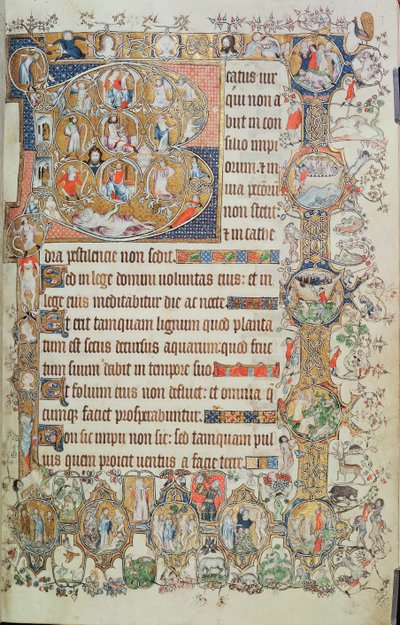 Beatus uir
qui non a
biit in con
silio impi
orum: & in
uia peccorū
non stetit:
& in cathe
dra pestilencie non sedit.
Sed in lege domini uoluntas eius: et in
lege eius meditabitur die ac nocte.
Et erit tamquam lignum quod planta
tum est secus decursus aquarum: quod fruc
tum suum dabit in tempore suo
Et folium eius non defluet: et omnia q
cumq; faciet prosperabuntur.
Non sic impii non sic: sed tamquam pul
uis quem proicit uentus a facie terre.